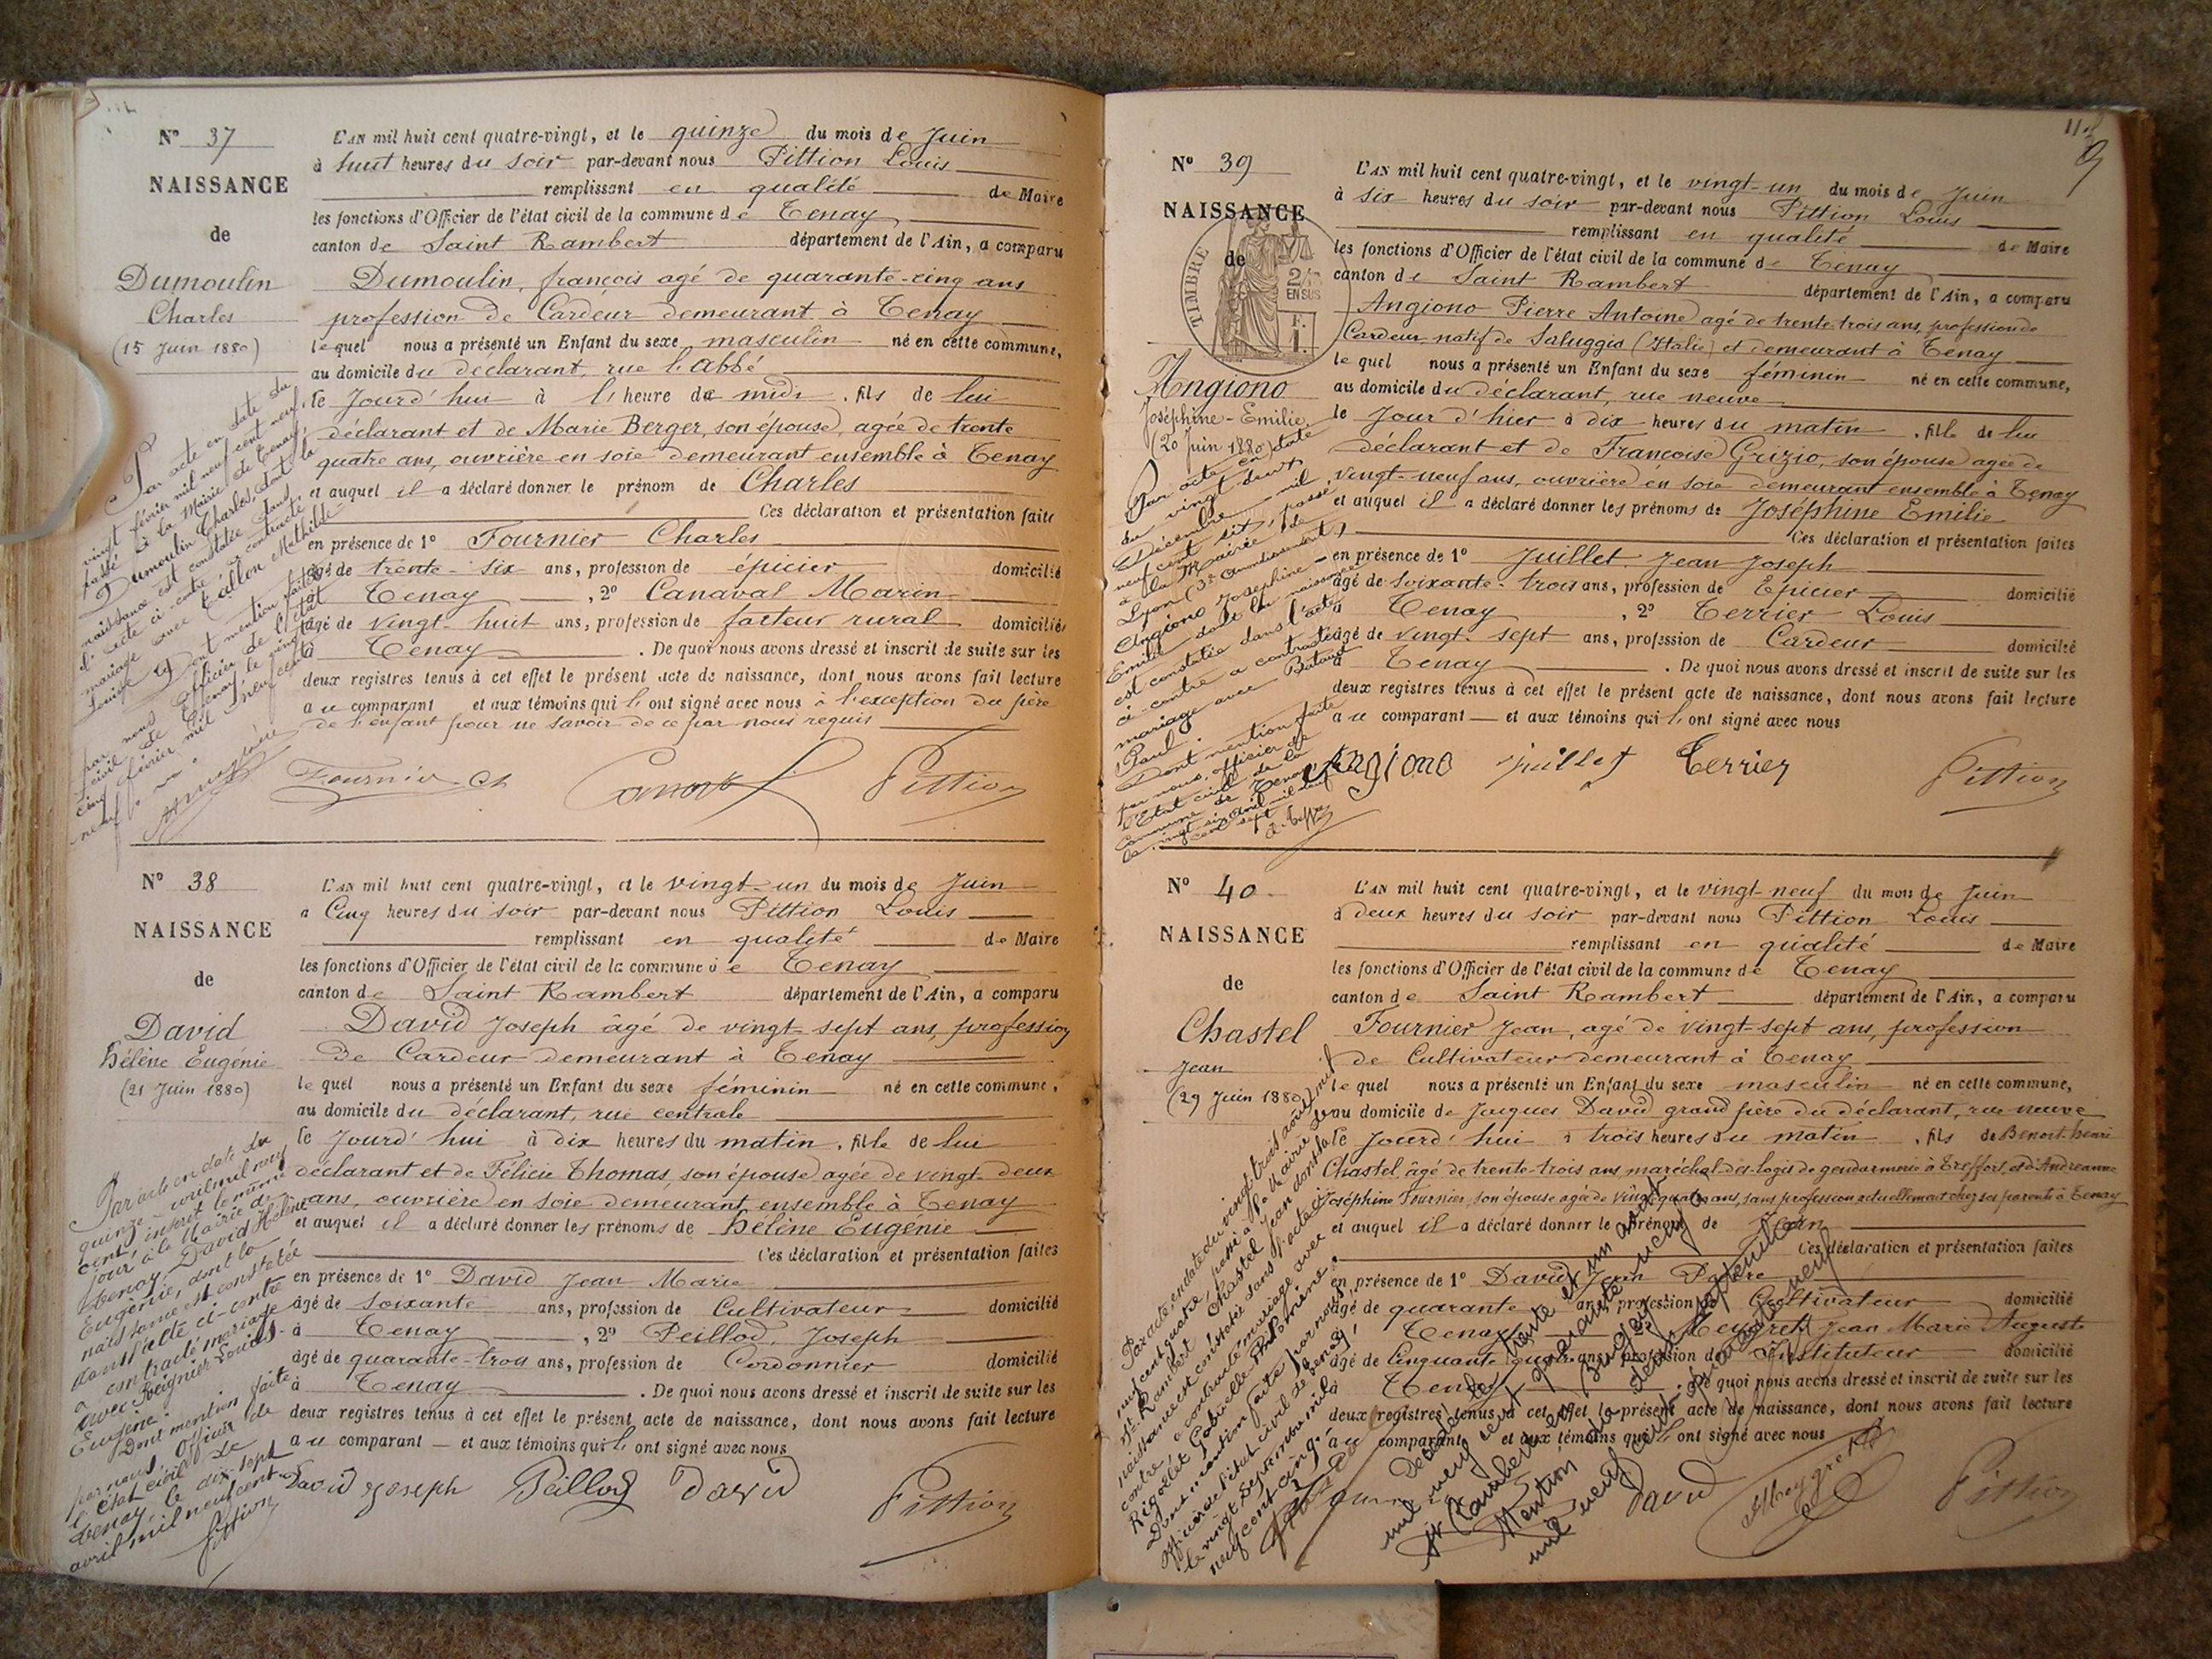 N° 37
NAISSANCE
de
Dumoulin
Charles
(15 Juin 1880)
L'AN mil huit cent quatre-vingt, et le quinze du mois de Juin
à huit heures du soir par-devant nous Pittion Louis
remplissant en qualité de Maire
les fonctions d'Officier de l'état civil de la commune de Tenay
canton de Saint Rambert département de l'Ain, a comparu
Dumoulin, françois agé de quarante-cinq ans
profession de Cardeur demeurant à Tenay
lequel nous a présenté un Enfant du sexe masculin né en cette commune,
au domicile du déclarant, rue l'Abbé
le Jourd'hui à l'heure de midi, fils de lui
déclarant et de Marie Berger, son épouse, agée de trente
quatre ans, ouvrière en soie demeurant ensemble à Tenay
et auquel il a déclaré donner le prénom de Charles
Ces déclaration et présentation faites
en présence de 1° Fournier Charles
âgé de trente-six ans, profession de épicier domicilié
à Tenay, 2° Canaval Marin
âgé de vingt-huit ans, profession de facteur rural domicilié
à Tenay. De quoi nous avons dressé et inscrit de suite sur les
deux registres tenus à cet effet le présent acte de naissance, dont nous avons fait lecture
au comparant et aux témoins qui l'ont signé avec nous à l'exception du père
de l'enfant pour ne savoir de ce par nous requis
Fournier Ch Pittion
Par acte en date du
vingt février mil neuf cent neuf,
passé à la Mairie de Tenay,
Dumoulin Charles, dont la
naissance est constatée dans
l'acte ci-contre, a contracté
mariage avec Tallon Mathilde
Louise
Dont mention faite
par nous Officier de l'état
civil de Tenay, le vingt
cinq février mil neuf cent
neuf
N° 38
NAISSANCE
de
David
Hélène Eugénie
(21 Juin 1880)
L'AN mil huit cent quatre-vingt, et le vingt-un du mois de Juin
à Cinq heures du soir par-devant nous Pittion Louis
remplissant en qualité de Maire
les fonctions d'Officier de l'état civil de la commune de Tenay
canton de Saint Rambert département de l'Ain, a comparu
David Joseph âgé de vingt-sept ans, profession
de Cardeur demeurant à Tenay
lequel nous a présenté un Enfant du sexe féminin né en cette commune,
au domicile du déclarant, rue centrale
le Jourd'hui à dix heures du matin, fille de lui
déclarant et de Félicie Thomas, son épouse agée de vingt-deux
ans, ouvrière en soie demeurant ensemble à Tenay
et auquel il a déclaré donner les prénoms de Hélène Eugénie
Ces déclaration et présentation faites
en présence de 1° David Jean Marie
âgé de soixante ans, profession de Cultivateur domicilié
à Tenay, 2° Peillod, Joseph
âgé de quarante-trois ans, profession de Cordonnier domicilié
à Tenay. De quoi nous avons dressé et inscrit de suite sur les
deux registres tenus à cet effet le présent acte de naissance, dont nous avons fait lecture
au comparant et aux témoins qui l'ont signé avec nous
David Joseph Peillod David Pittion
Par acte en date du
quinze avril mil neuf
cent inscrit le même
jour à la Mairie de
Tenay, David Hélène
Eugénie, dont la
naissance est constatée
dans l'acte ci-contre
a contracté mariage
avec Louis
Eugène.
Dont mention faite
par nous Officier de
l'état civil de
Tenay le dix-sept
avril mil neuf cent
Pittion
N° 39
NAISSANCE
de
TIMBRE
2/10
EN SUS
Angiono
Joséphine-Emilie
(20 Juin 1880)
L'AN mil huit cent quatre-vingt, et le vingt-un du mois de Juin
à six heures du soir par-devant nous Pittion Louis
remplissant en qualité de Maire
les fonctions d'Officier de l'état civil de la commune de Tenay
canton de Saint Rambert département de l'Ain, a comparu
Angiono Pierre Antoine agé de trente trois ans, profession de
Cardeur natif de Saluggia (Italie) et demeurant à Tenay
lequel nous a présenté un Enfant du sexe féminin né en cette commune,
au domicile du déclarant, rue neuve
le Jour d'hier à dix heures du matin, fille de lui
déclarant et de Françoise Grizio, son épouse agée de
vingt-neuf ans, ouvrière en soie demeurant ensemble à Tenay
et auquel il a déclaré donner les prénoms de Joséphine Emilie
Ces déclaration et présentation faites
en présence de 1° Juillet Jean Joseph
âgé de soixante-trois ans, profession de Epicier domicilié
à Tenay, 2° Terrier Louis
âgé de vingt-sept ans, profession de Cardeur domicilié
à Tenay. De quoi nous avons dressé et inscrit de suite sur les
deux registres tenus à cet effet le présent acte de naissance, dont nous avons fait lecture
au comparant et aux témoins qui l'ont signé avec nous
Angiono juillet Terrier Pittion
Par acte en date
du vingt deux
Décembre mil
neuf cent six, passé
à la Mairie de
Lyon (3e arrondissement),
Angiono Joséphine-
Emilie dont la naissance
est constatée dans l'acte
ci-contre a contracté
mariage avec Batout
Paul.
Dont mention faite
par nous, officier de
l'Etat civil de la
Commune de Tenay
le vingt six avril mil neuf
cent sept
N° 40
NAISSANCE
de
Chastel
Jean
(29 Juin 1880)
L'AN mil huit cent quatre-vingt, et le vingt-neuf du mois de Juin
à deux heures du soir par-devant nous Pittion Louis
remplissant en qualité de Maire
les fonctions d'Officier de l'état civil de la commune de Tenay
canton de Saint Rambert département de l'Ain, a comparu
Fournier Jean, agé de vingt-sept ans, profession
de Cultivateur demeurant à Tenay
lequel nous a présenté un Enfant du sexe masculin né en cette commune,
au domicile de Jacques David grand père du déclarant, rue neuve
le Jourd'hui à trois heures du matin, fils de Benoit-henri
Chastel âgé de trente-trois ans, maréchal-des-logis de gendarmerie à Treffort, et d'Andréanne
Joséphine Fournier, son épouse agée de vingt-quatre ans, sans profession actuellement chez ses parents à Tenay
et auquel il a déclaré donner le prénom de Jean
Ces déclaration et présentation faites
en présence de 1° David Jean Pierre
âgé de quarante ans, profession de Cultivateur domicilié
à Tenay 2° Meygret Jean Marie Auguste
âgé de Cinquante quatre ans, profession d'Instituteur domicilié
à Tenay. De quoi nous avons dressé et inscrit de suite sur les
deux registres tenus à cet effet le présent acte de naissance, dont nous avons fait lecture
au comparant et aux témoins qui l'ont signé avec nous
David Meygret Pittion
Par acte en date du vingt trois août mil
neuf cent quatre, passé à la Mairie de
St Rambert Chastel Jean dont la
naissance est constatée dans l'acte ci
contre a contracté mariage avec
Rigollet Gabrielle Philomène.
Dont mention faite par nous,
officier de l'état civil de Tenay
le vingt Septembre mil
neuf cent cinq.
Décédé le trente et un août
mil neuf cent quarante neuf à
St Rambert en Bugey
Mention du deux septembre
mil neuf cent quarante neuf